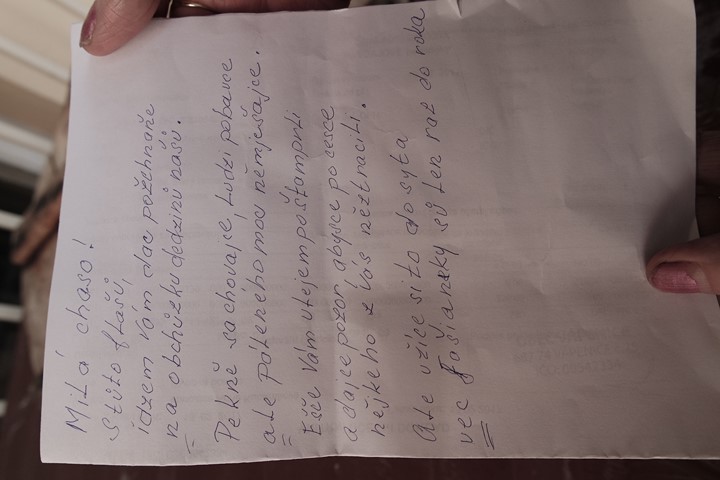 Miłá chaso!
Stúto fłašú,
idzem vám dac požehnaňé
na obchůzku dedzinú našú.
Pekně sa chovajcé, ludzí pobavce
ale páleného moc němješajce.
Ešče Vám ulejem po štamprli
a dajce pozor abysce po cesce
nějkeho z Vás něztracili.
Ale užice si to dosyta
vec fašianky sú len raz do roka